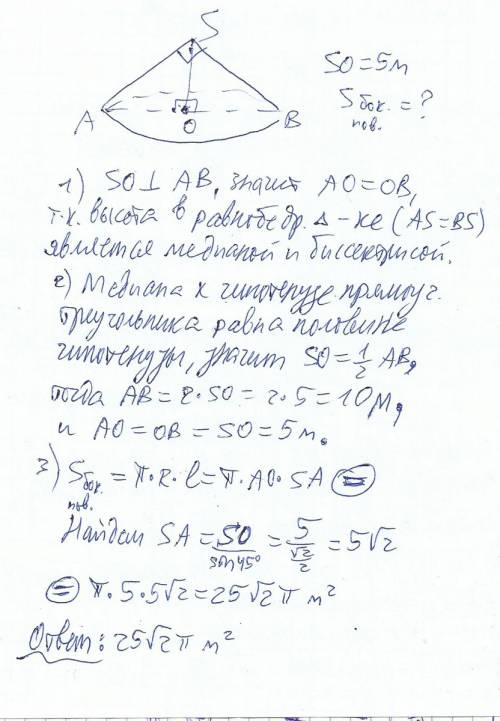 S
SO = 5м
A
O
B
Sбок. пов. = ?
1) SO ⊥ AB, значит AO = OB,
т.к. высота в равнобедр. Δ-ке (AS = BS)
является медианой и биссектрисой.
2) Медиана к гипотенузе прямоуг.
треугольника равна половине
гипотенузы, значит SO = 1/2 AB,
тогда AB = 2·SO = 2·5 = 10м,
и AO = OB = SO = 5м.
3) Sбок. пов. = π·R·l = π·AO·SA =
Найдем SA = SO/sin45° = 5/(√2/2) = 5√2
= π·5·5√2 = 25√2π м²
Ответ: 25√2π м²